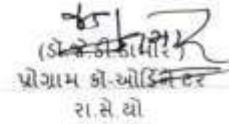 (ડૉ.જે.ડી.ડામોર)
પ્રોગ્રામ કૉ-ઓર્ડિનેટર
રા.સે.યો